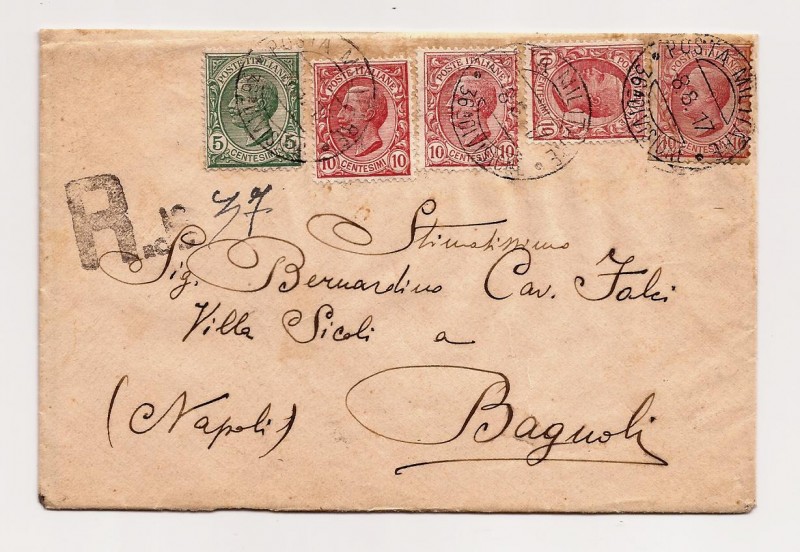 POSTE ITALIANE POSTE ITALIANE POSTE ITALIANE POSTE ITALIANE
5 CENTESIMI 5 10 CENTESIMI 10 10 CENTESIMI 10 10 CENTESIMI 10 CENTESIMI
POSTA MILITARE
8.8.17
R. 77
Stimatissimo
Sig. Bernardino Cav. Falci
Villa Sicoli a
(Napoli) Bagnoli